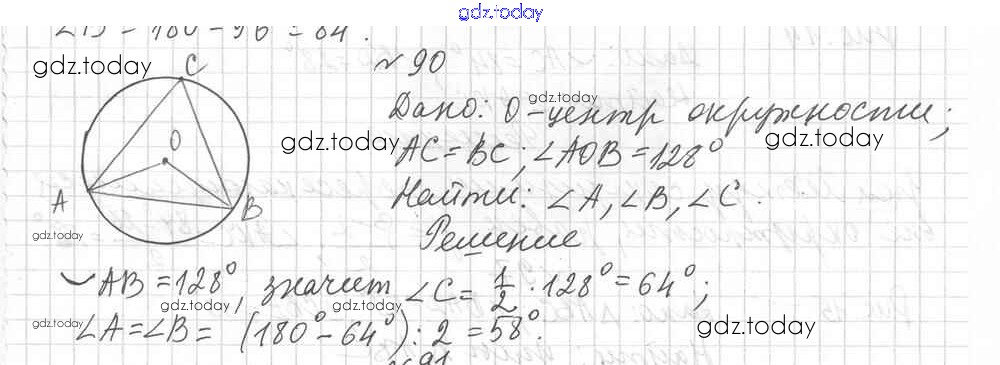 gdz.today
∠B = 180 - 96 = 84°.
gdz.today
C
№ 90
Дано: gdz.today O - центр окружности;
gdz.today
gdz.today
O
AC = BC; ∠AOB = 128°
A
B
Найти: ∠A, ∠B, ∠C.
gdz.today
Решение
◡AB = 128°, значит ∠C = 1/2 · 128° = 64°;
gdz.today gdz.today
gdz.today ∠A = ∠B = (180° - 64°) : 2 = 58°.
gdz.today
№ 91